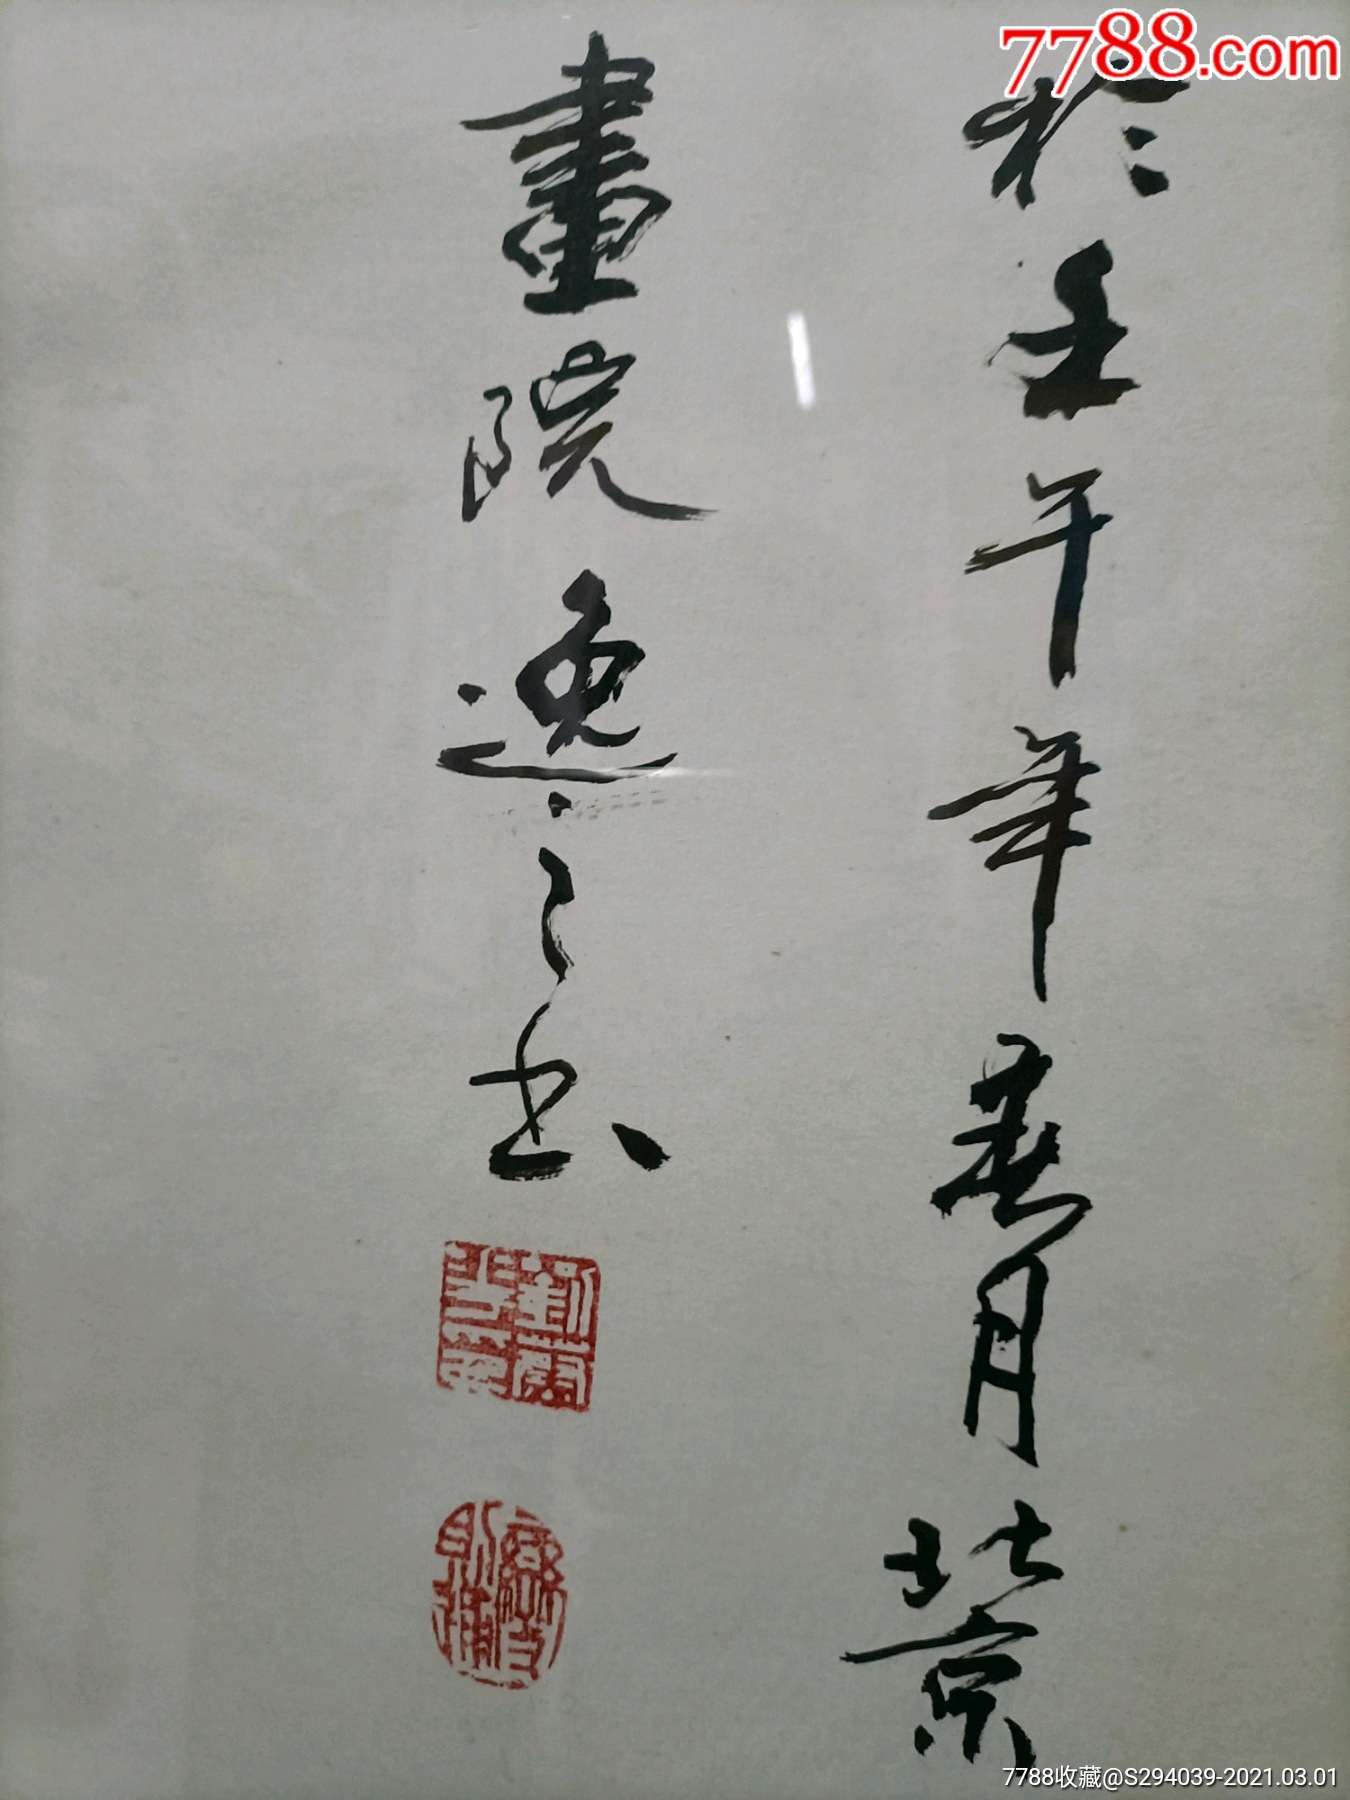 7788.com
於壬午年春月北京
畫院逸之書
7788收藏@S294039-2021.03.01